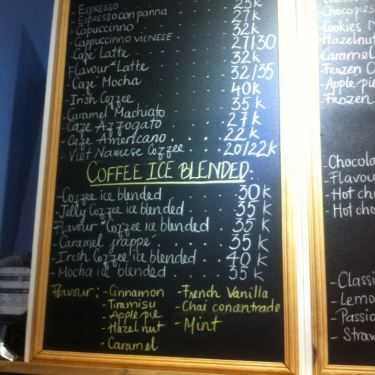 - Espresso 25 k
- Espresso con panna 27 k
- Capuccinno 32 k
- Cappuccino vienese 27/30
- Cafe Latte 32 k
- Flavour Latte 32/35
- Cafe Mocha 40 k
- Irish Coffee 35 k
- Caramel Machiato 27 k
- Cafe Affogato 22 k
- Cafe Americano
- Viet Namese Coffee 20/22k
COFFEE ICE BLENDED
- Coffee ice blended 30 k
- Jelly Coffee ice blended 35 k
- Flavour Coffee ice blended 35 k
- Caramel frappe 35 k
- Irish Coffee ice blended 40 k
- Mocha ice blended 35 k
Flavour: - Cinnamon
- Tiramisu
- Apple pie
- Hazelnut
- Caramel
- French Vanilla
- Chai conentrade
- Mint
- Choco
- Cookies
- Hazelnut
- Caramel
- Frozen C
- Apple pie
- Frozen
- Chocola
- Flavou
- Hot cho
- Hot cho
- Classi
- Lemo
- Passio
- Straw